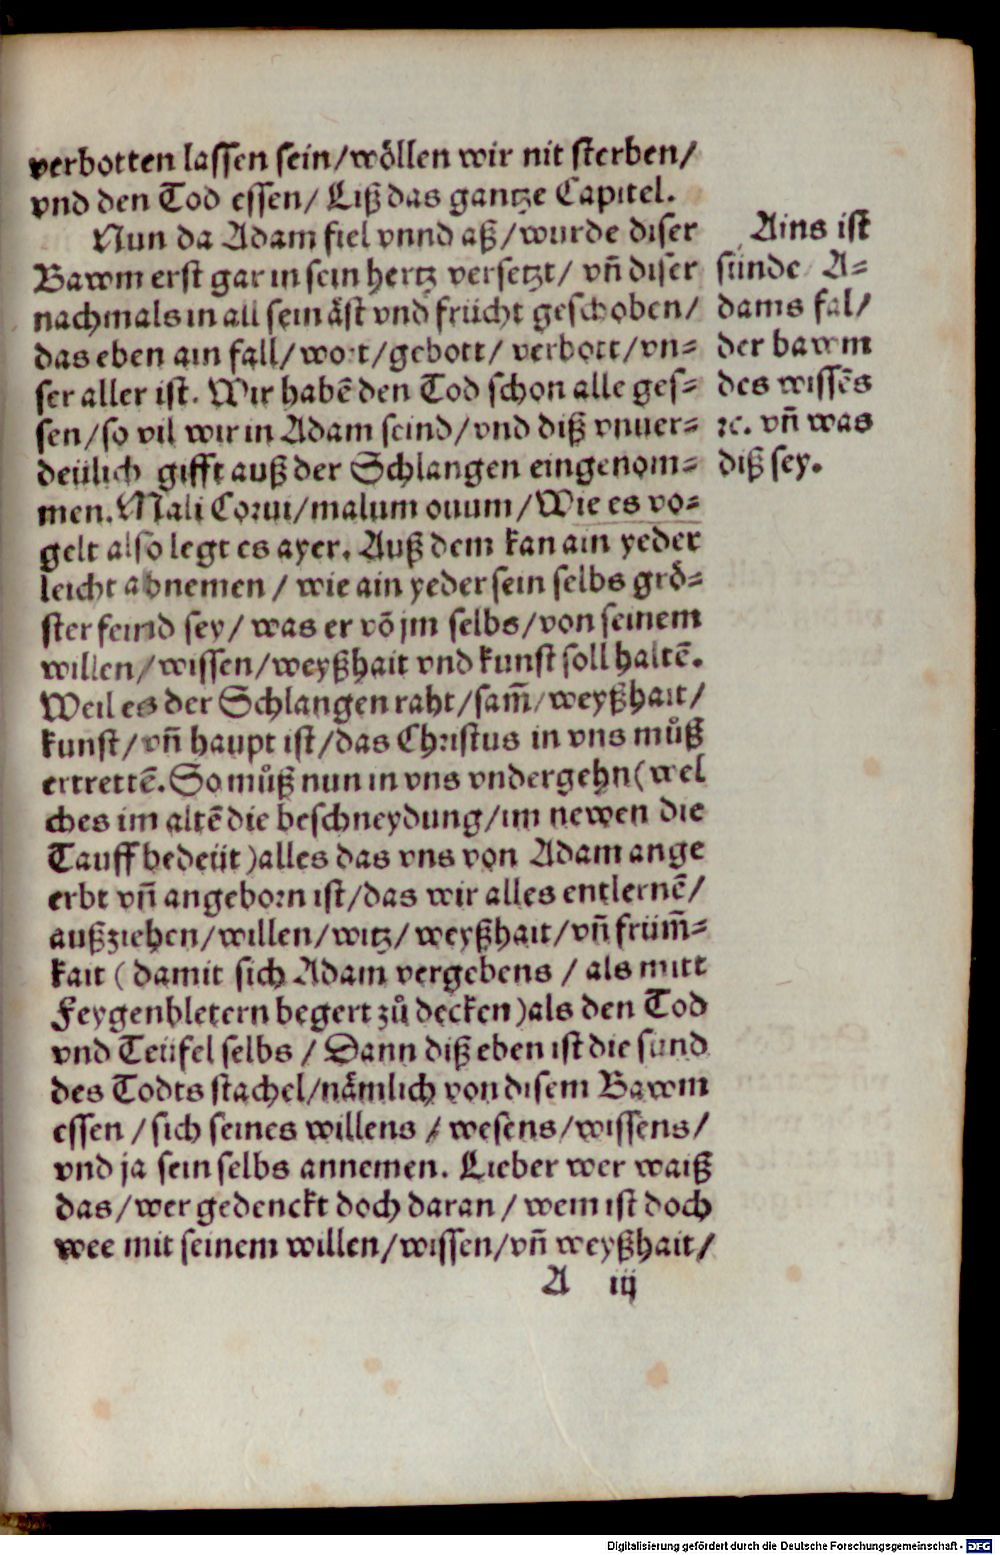 verbotten lassen sein/wöllen wir nit sterben/
vnd den Tod essen/ Liß das gantze Capitel.
Nun da Adam fiel vnnd aß/wurde diser
Bawm erst gar in sein hertz versetzt/ vñ diser
nachmals in all sein äst vnd frücht geschoben/
das eben ain fall/wort/gebott/ verbott/vn⸗
ser aller ist. Wir habē den Tod schon alle ges⸗
sen/so vil wir in Adam seind/vnd diß vnuer⸗
deülich gifft auß der Schlangen eingenom⸗
men. Mali Corui/malum ouum/Wie es vo⸗
gelt also legt es ayer. Auß dem kan ain yeder
leicht abnemen / wie ain yeder sein selbs grö⸗
ster feind sey/ was er võ jm selbs/von seinem
willen/wissen/weyßhait vnd kunst soll haltē.
Weil es der Schlangen raht/sam̃/weyßhait/
kunst/vñ haupt ist/das Christus in vns můß
ertrettē. So můß nun in vns vndergehn(wel
ches im altē die beschneydung/im newen die
Tauff bedeüt)alles das vns von Adam ange
erbt vñ angeborn ist/das wir alles entlernē/
außziehen/willen/witz/weyßhait/vñ früm̃⸗
kait (damit sich Adam vergebens / als mitt
Feygenbletern begert zů decken)als den Tod
vnd Teüfel selbs / Dann diß eben ist die sünd
des Todts stachel/nämlich von disem Bawm
essen /sich seines willens / wesens/wissens/
vnd ja sein selbs annemen. Lieber wer waiß
das/wer gedenckt doch daran / wem ist doch
wee mit seinem willen/wissen/vñ weyßhait/
A iij
Ains ist
sünde A⸗
dams fal/
der bawm
des wissēs
ꝛc. vñ was
diß sey.
Digitalisierung gefördert durch die Deutsche Forschungsgemeinschaft - DFG